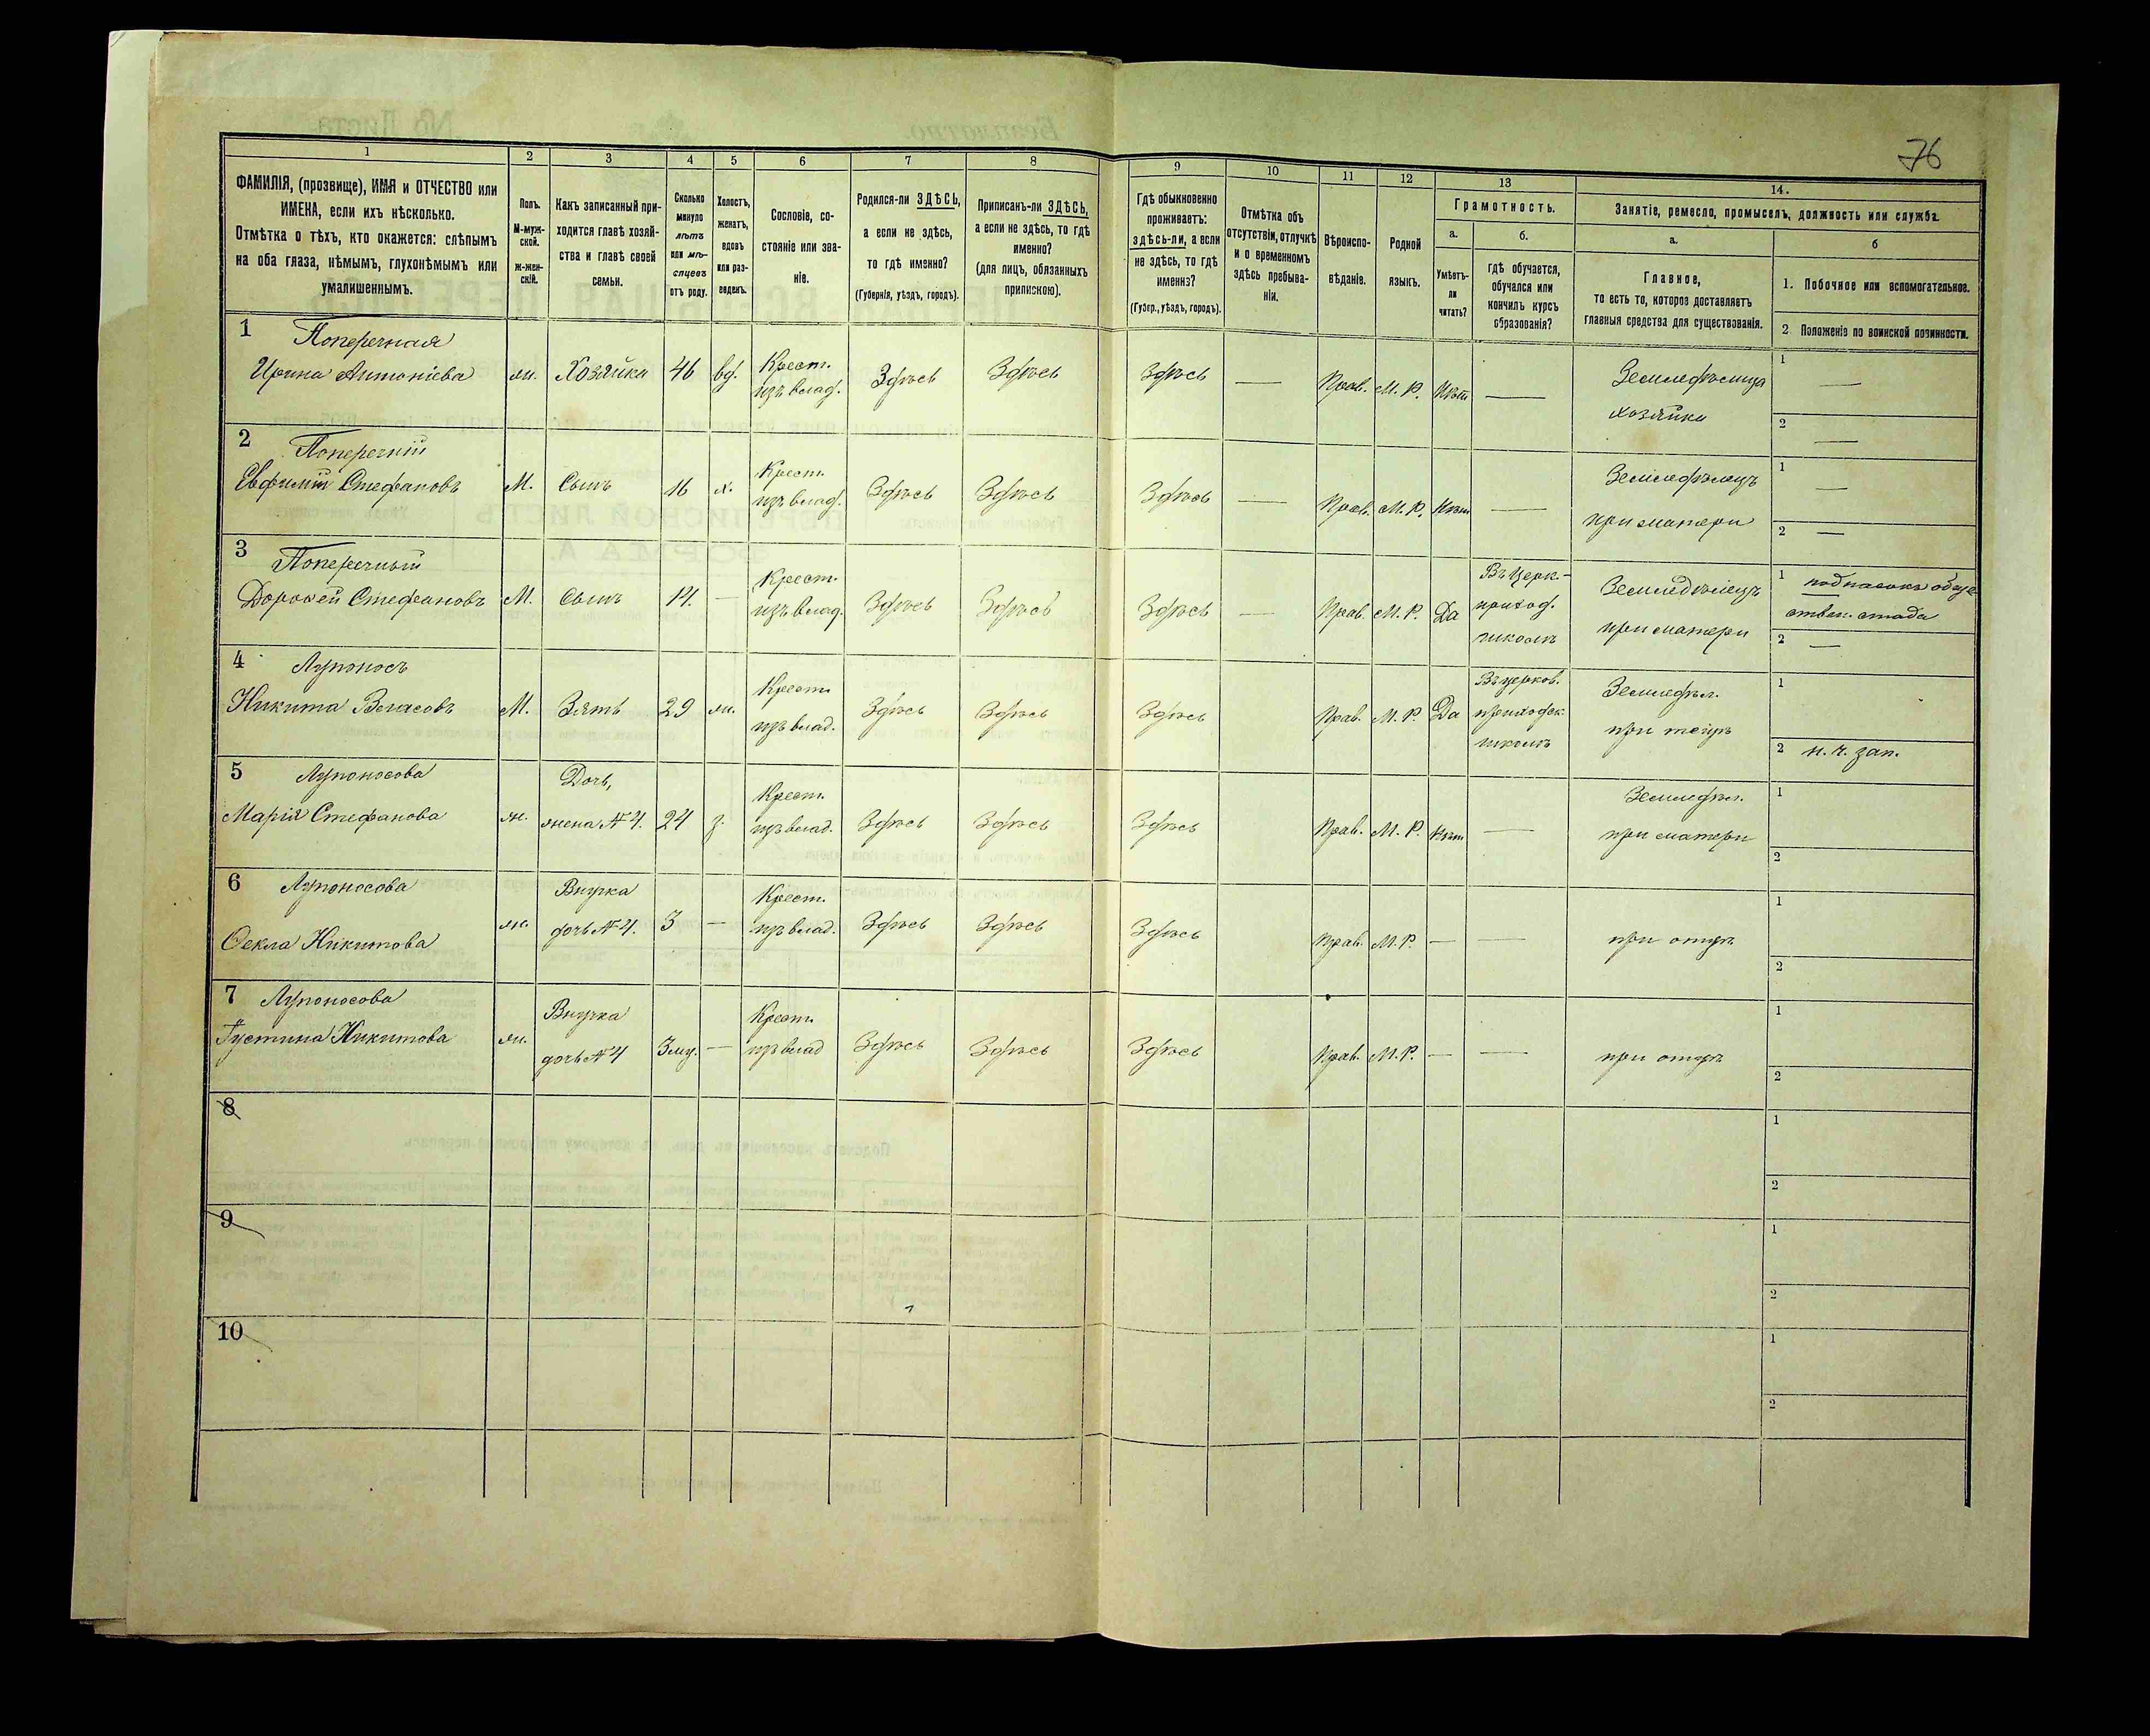 76
1
2
3
4
5
6
7
8
9
10
11
12
13
14.
ФАМИЛІЯ, (прозвище), ИМЯ и ОТЧЕСТВО или
ИМЕНА, если ихъ нѣсколько.
Отмѣтка о тѣхъ, кто окажется: слѣпымъ
на оба глаза, нѣмымъ, глухонѣмымъ или
умалишеннымъ.
Полъ.
М-муж-
ской.
Ж-жен-
скій.
Какъ записанный при-
ходится главѣ хозяй-
ства и главѣ своей
семьи.
Сколько
минуло
лѣтъ
или мѣ-
сяцевъ
отъ роду.
Холостъ,
женатъ,
вдовъ
или раз-
веденъ.
Сословіе, со-
стояніе или зва-
ніе.
Родился-ли ЗДѢСЬ,
а если не здѣсь,
то гдѣ именно?
(Губернія, уѣздъ, городъ).
Приписанъ-ли ЗДѢСЬ,
а если не здѣсь, то гдѣ
именно?
(для лицъ, обязанныхъ
припискою).
Гдѣ обыкновенно
проживаетъ:
здѣсь-ли, а если
не здѣсь, то гдѣ
именно?
(Губер., уѣздъ, городъ).
Отмѣтка объ
отсутствіи, отлучкѣ
и о временномъ
здѣсь пребыва-
ніи.
Вѣроиспо-
вѣданіе.
Родной
языкъ.
Грамотность.
а.
Умѣетъ-
ли
читать?
б.
гдѣ обучается,
обучался или
кончилъ курсъ
образованія?
Занятіе, ремесло, промыселъ, должность или служба.
а.
Главное,
то есть то, которое доставляетъ
главныя средства для существованія.
б
1. Побочное или вспомогательное.
2. Положеніе по воинской повинности.
1 Поперечная
Ирина Антоніева ж. Хозяйка 46 вд. Крест. изъ влад. Здѣсь Здѣсь Здѣсь — Прав. М. Р. Нѣтъ — Земледѣлица хозяйка 1 — 2 —
2 Поперечній
Евфимій Стефановъ М. Сынъ 16 х. Крест. изъ влад. Здѣсь Здѣсь Здѣсь — Прав. М. Р. Нѣтъ — Земледѣлецъ при матери 1 — 2 —
3 Поперечный
Дорофей Стефановъ М. Сынъ 14. — Крест. изъ влад. Здѣсь Здѣсь Здѣсь — Прав. М. Р. Да Въ церк.- приход. школѣ Земледѣлецъ при матери 1 подпасокъ обще ствен. стада 2 —
4 Лупоносъ
Никита Власовъ М. Зять 29 ж. Крест. изъ влад. Здѣсь Здѣсь Здѣсь Прав. М. Р. Да Въ церков. приходск. школѣ Земледѣл. при тещѣ 1 2 н. ч. зап.
5 Лупоносова
Марія Стефанова ж. Дочь, жена № 4. 24 з. Крест. изъ влад. Здѣсь Здѣсь Здѣсь Прав. М. Р. Нѣтъ — Земледѣл. при матери 1 2
6 Лупоносова
Ѳекла Никитова ж. Внучка дочь № 4. 3 — Крест. изъ влад. Здѣсь Здѣсь Здѣсь Прав. М. Р. — — при отцѣ 1 2
7 Лупоносова
Густина Никитова ж. Внучка дочь № 4 3 м. — Крест. изъ влад Здѣсь Здѣсь Здѣсь Прав. М. Р. — — при отцѣ 1 2
8 1 2
9 1 2
10 1 2